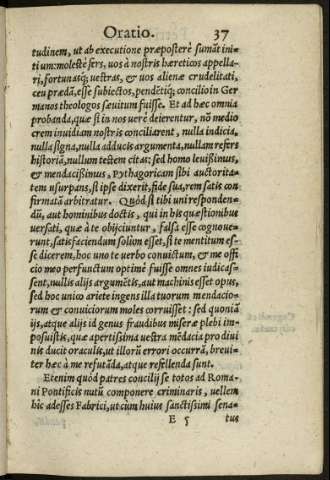 Oratio. 37
tudinem, ut ab executione præposterè sumāt ini-
tium: molestè fers, uos à nostris hæreticos appella-
ri, fortunasq́; uestras, & uos alienæ crudelitati,
ceu prædā, esse subiectos, pendētiq́; concilio in Ger
manos theologos sæuitum fuisse. Et ad hæc omnia
probanda, quæ si in nos uerè deierentur, nō medio
crem inuidiam nostris conciliarent, nulla indicia,
nulla signa, nulla adducis argumenta, nullam refers
historiā, nullum testem citas: sed homo leuißimus,
& mendacißimus, Pythagoricam sibi auctorita-
tem usurpans, si ipse dixerit, fide sua, rem satis con
firmatā arbitratur. Quòd si tibi uni responden-
dū, aut hominibus doctis, qui in his quæstionibus
uersati, quæ à te obijciuntur, falsa esse cognoue-
runt, satisfaciendum solùm esset, si te mentitum es-
se dicerem, hoc uno te uerbo conuictum, & me offi
cio meo perfunctum optimè fuisse omnes iudicas-
sent, nullis alijs argumētis, aut machinis esset opus,
sed hoc unico ariete ingens illa tuorum mendacio-
rum & conuiciorum moles corruisset: sed quoniā
ijs, atque alijs id genus fraudibus miseræ plebi im-
posuistis, quæ apertißima uestra mēdacia pro diui
nis ducit oraculis, ut illorū errori occurrā, breui-
ter hæc à me refutāda, atque refellenda sunt.
Etenim quòd patres concilij se totos ad Roma-
ni Pontificis nutū componere criminaris, uellem
hîc adesses Fabrici, ut cùm huius sanctißimi sena-
E 5 tus